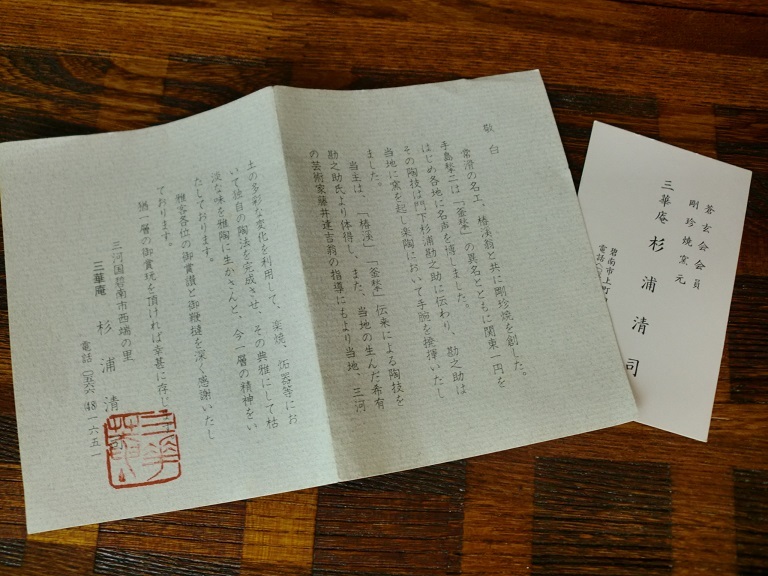 敬白
常滑の名工、椿渓翁と共に剛珍焼を創した。
手島琴二は「釜琴」の異名とともに関東一円を
はじめ各地に名声を博しました。
その陶技は門下杉浦勘之助に伝わり、勘之助は
当地に窯を起し楽陶において手腕を揮揮いたし
ました。
当主は、「椿渓」「釜琴」伝来による陶技を
勘之助氏より体得し、また、当地の生んだ希有
の芸術家藤井達吉翁の指導にもより当地、三河
土の多彩な変化を利用して、楽焼、炻器等にお
いて独自の陶法を完成させ、その典雅にして枯
淡な味を雅陶に生かさんと、今一層の精神をい
たしております。
雅客各位の御賞讃と御鞭撻を深く感謝いたし
ております。
猶一層の御賞玩を頂ければ幸甚に存じ
三河国碧南市西端の里
三華庵 杉浦清
電話(〇五六六)48一六五一
三華庵
蒼玄会会員
剛珍焼窯元
三華庵 杉浦清司
碧南市上町
電話